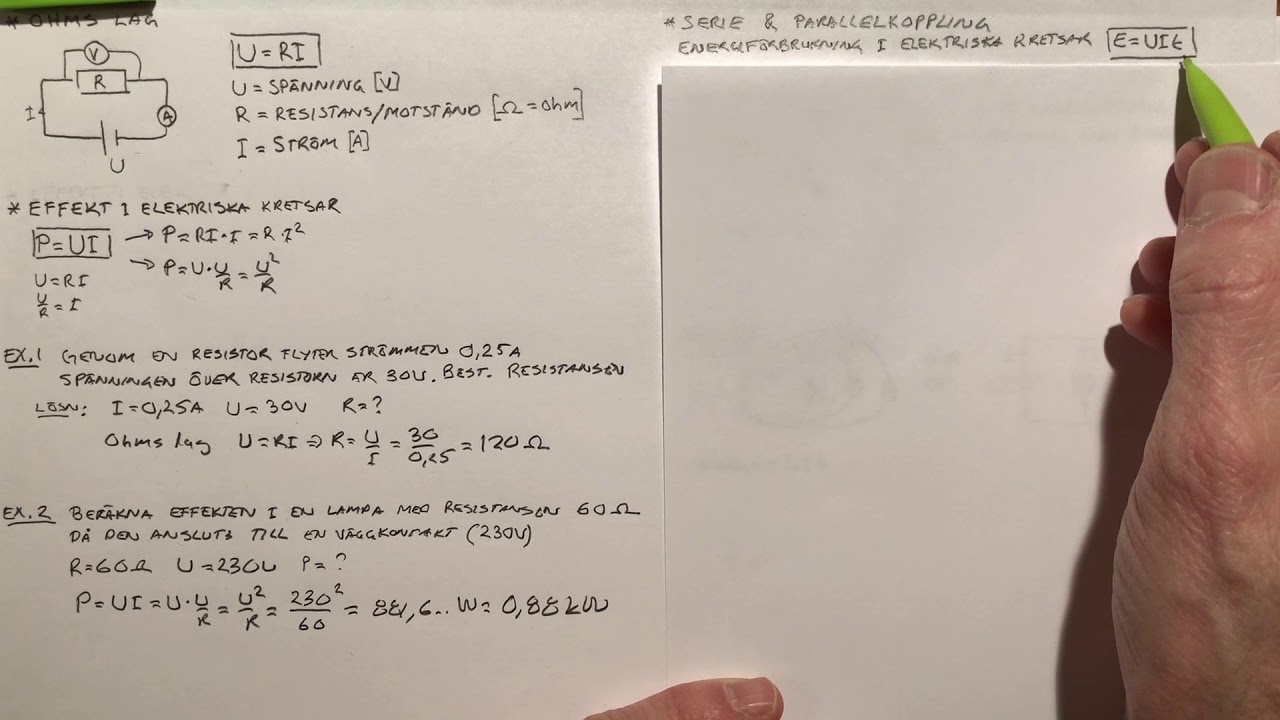 * OHMS LAG
V
R
I
A
U
U = RI
U = SPÄNNING [V]
R = RESISTANS/MOTSTÅND [Ω = Ohm]
I = STRÖM [A]
* EFFEKT I ELEKTRISKA KRETSAR
P = UI → P = RI · I = R · I²
→ P = U · U/R = U²/R
U = RI
U/R = I
EX.1 GENOM EN RESISTOR FLYTER STRÖMMEN 0,25A
SPÄNNINGEN ÖVER RESISTORN ÄR 30V. BEST. RESISTANSEN
LÖSN: I = 0,25A U = 30V R = ?
Ohms lag U = RI ⇒ R = U/I = 30/0,25 = 120 Ω
EX.2 BERÄKNA EFFEKTEN I EN LAMPA MED RESISTANSEN 60 Ω
DÅ DEN ANSLUTS TILL EN VÄGGKONTAKT (230V)
R = 60Ω U = 230V P = ?
P = UI = U · U/R = U²/R = 230²/60 = 881,6.. W = 0,88 kW
* SERIE & PARALLELKOPPLING
ENERGIFÖRBRUKNING I ELEKTRISKA KRETSAR E = UIt